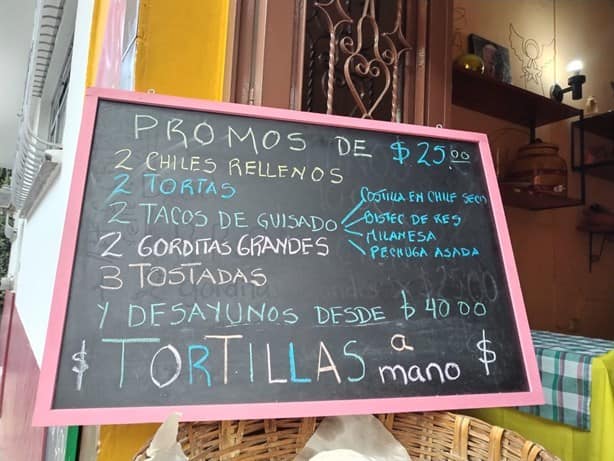 PROMOS DE $25.00
2 CHILES RELLENOS
2 TORTAS
2 TACOS DE GUISADO
COSTILLA EN CHILE SECO
BISTEC DE RES
MILANESA
PECHUGA ASADA
2 GORDITAS GRANDES
3 TOSTADAS
Y DESAYUNOS DESDE $40 00
$ TORTILLAS a mano $